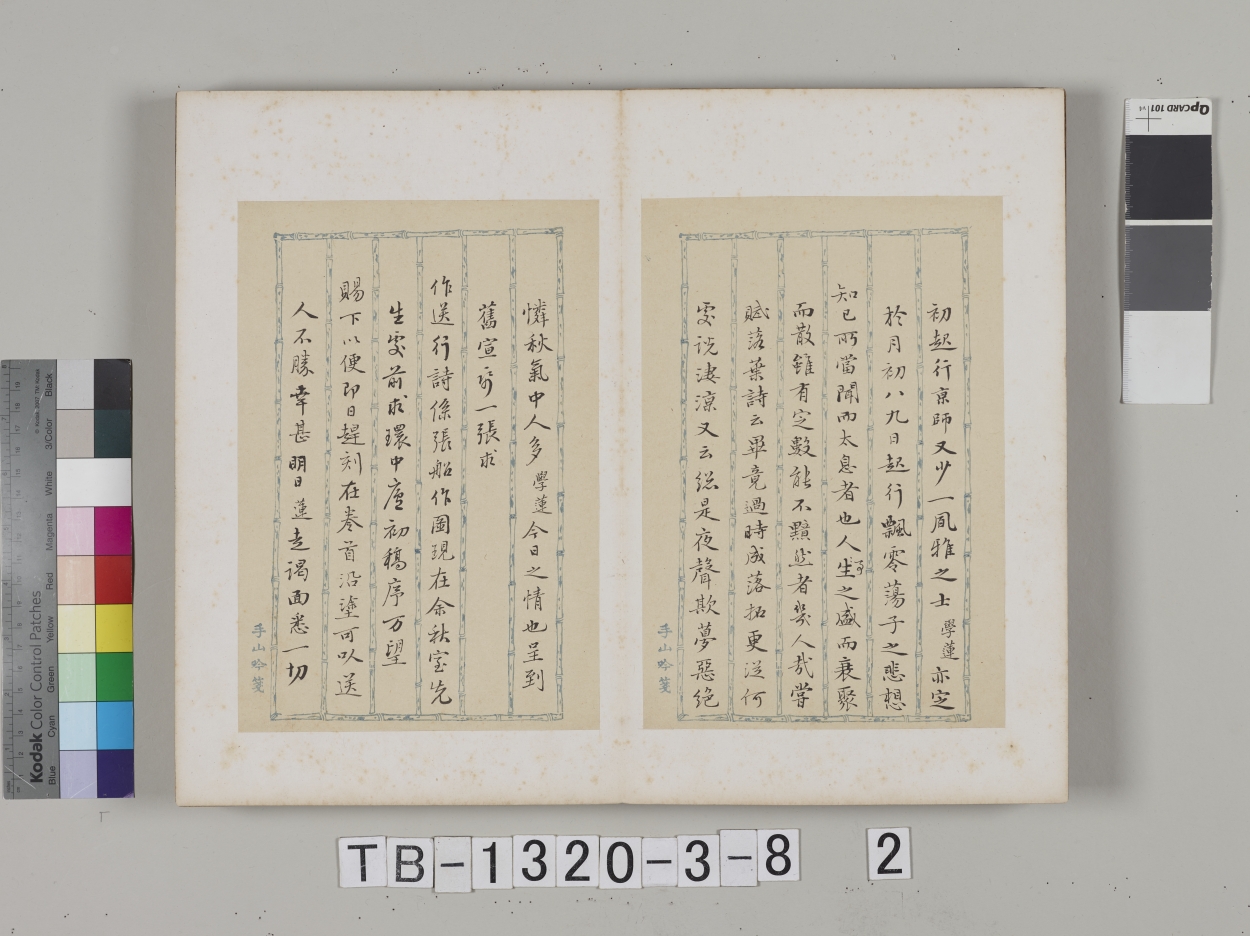 初起行京師又少一風雅之士學蓮亦定
於月初八九日起行飄零蕩子之悲想
知己所當聞而太息者也人生之盛而衰聚
而散雖有定數能不黯然者幾人哉嘗
賦落葉詩云畢竟過時成落拓更從何
處說淒涼又云總是夜聲欺夢惡絕
手山吟箋
憐秋氣中人多學蓮今日之情也呈到
舊宣紙一張求
作送行詩係張船作圖現在余秋室先
生處前求環中廬初稿序萬望
賜下以便即日趕刻在卷首沿塗可以送
人不勝幸甚明日蓮走謁面悉一切
手山吟箋
TB-1320-3-8 2
QPCARD 101 v4
Kodak Color Control Patches
Blue Cyan Green Yellow Red Magenta White 3/Color Black